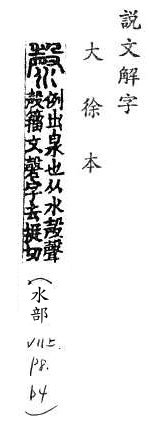 說文解字
大徐本
漀 側出泉也从水殸聲
殸籒文磬字去挺切
(水部
VII上.
p8.
b4)